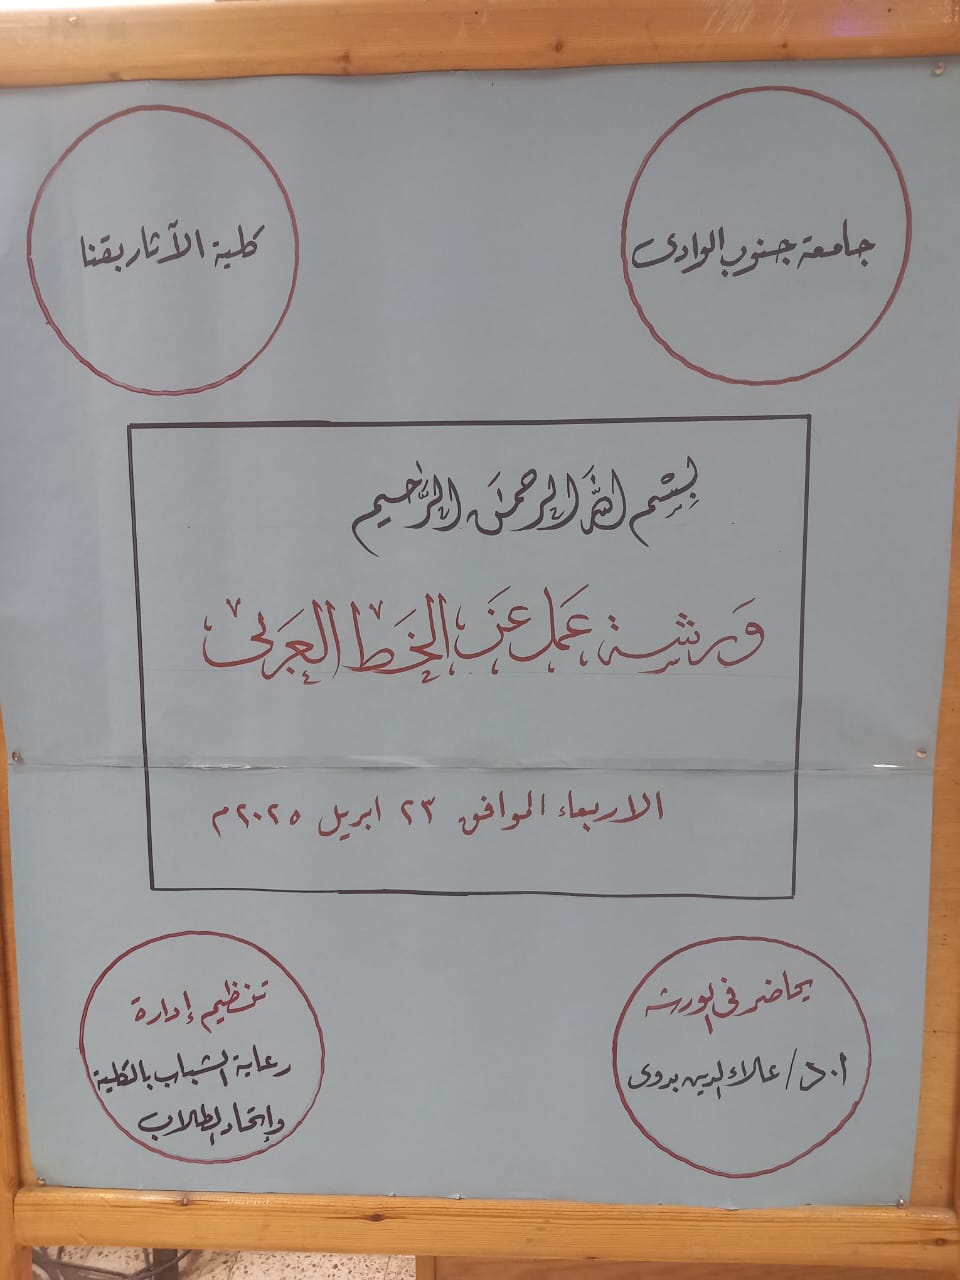 جامعة جنوب الوادى
كلية الآثار بقنا
بِسْمِ اللَّهِ الرحمَن الرَّحيم
وَرشة عَمل عَن الخَط العَربى
الاربعاء الموافق ٢٣ ابريل ٢٠٢٥م
يحاضر فى الورشه
ا.د/ علاء الدين بدوى
تنظيم إدارة
رعاية الشباب بالكلية
وإتحاد الطلاب